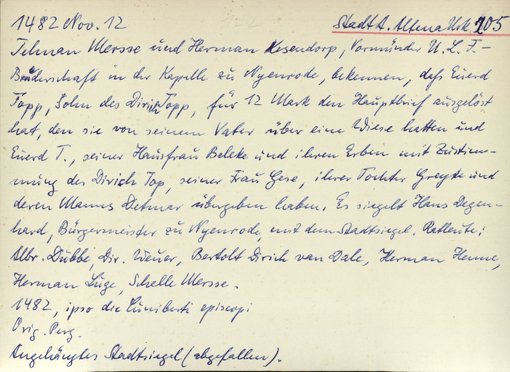 1482 Nov. 12 StadtA. Altena Urk 205
Tilman Mersse und Herman Kesendorp, Vormünder U. L. F.-
Bruderschaft in der Kapelle zu Nyenrode, bekennen, daß Everd
Topp, Sohn des Dirich Topp, für 12 Mark den Hauptbrief ausgelöst
hat, den sie von seinem Vater über eine Wiese hatten und
Everd T., seiner Hausfrau Beleke und ihren Erben mit Zustim-
mung des Dirich Top, seiner Frau Gese, ihrer Tochter Greyte und
deren Manns Detmar übergeben haben. Es siegelt Hans Degen-
hard, Bürgermeister zu Nyenrode, mit dem Stadtsiegel. Ratleute:
Albr. Dubbe, Dir. Wever, Bertolt Dirich van Dale, Herman Henne,
Herman Lüge, Schelle Mersse.
1482, ipso die Cuniberti episcopi
Orig. Perg.
Angehängtes Stadtsiegel (abgefallen).